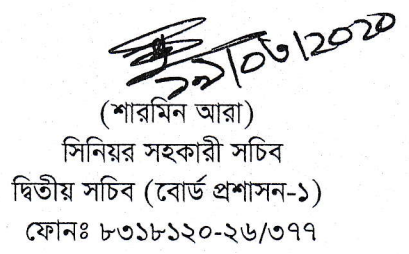 ১৯/০৩/২০২০
(শারমিন আরা)
সিনিয়র সহকারী সচিব
দ্বিতীয় সচিব (বোর্ড প্রশাসন-১)
ফোনঃ ৮৩১৮১২০-২৬/৩৭৭